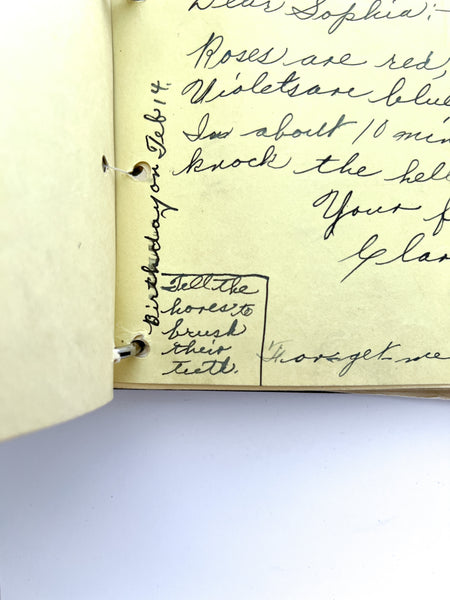 Dear Sophia:-
Roses are red,
Violets are blue
In about 10 min
knock the hell
Your f
Clar
Birthday on Feb 14.
Tell the
hores to
brush
their
teeth.
Forget me